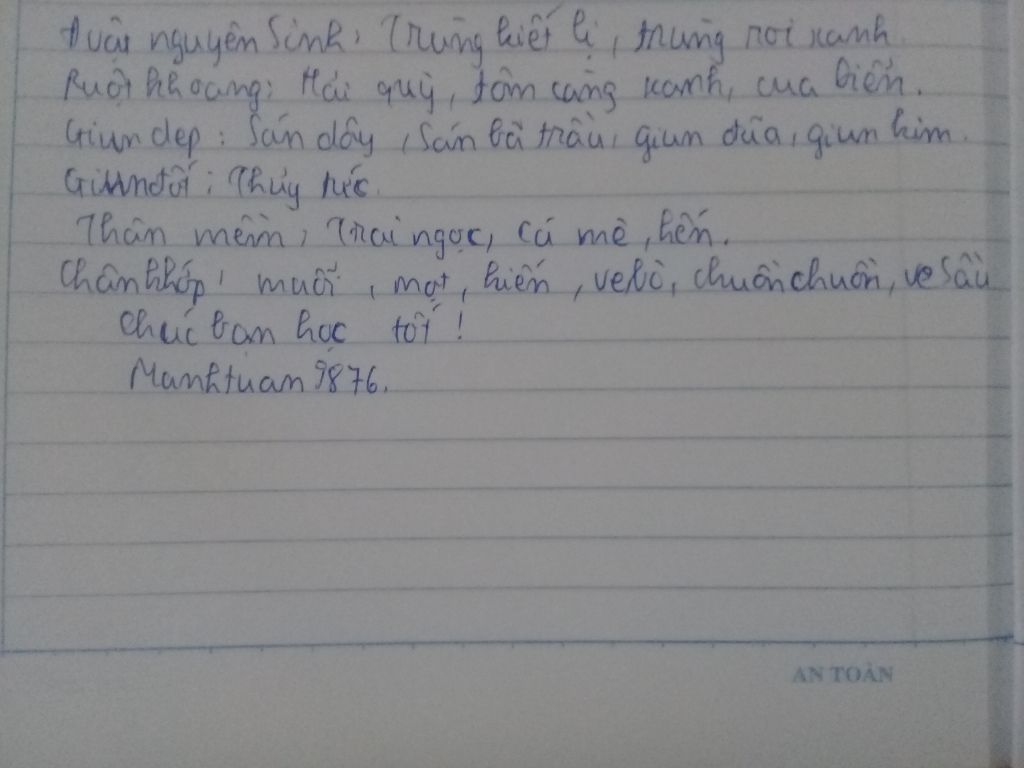 Động nguyên Sinh: Trùng kiết lị, trùng roi xanh
Ruột khoang: Hải quỳ, tôm càng xanh, cua biển.
Giun dẹp: Sán dây, Sán bã trầu, giun đũa, giun kim.
Giun đốt: Thủy tức.
Thân mềm: Trai ngọc, cá mè, hến.
Chân khớp: muỗi, mọt, kiến, ve bò, chuồn chuồn, ve Sầu
Chúc bạn học tốt!
Manhtuan 9876.
AN TOÀN